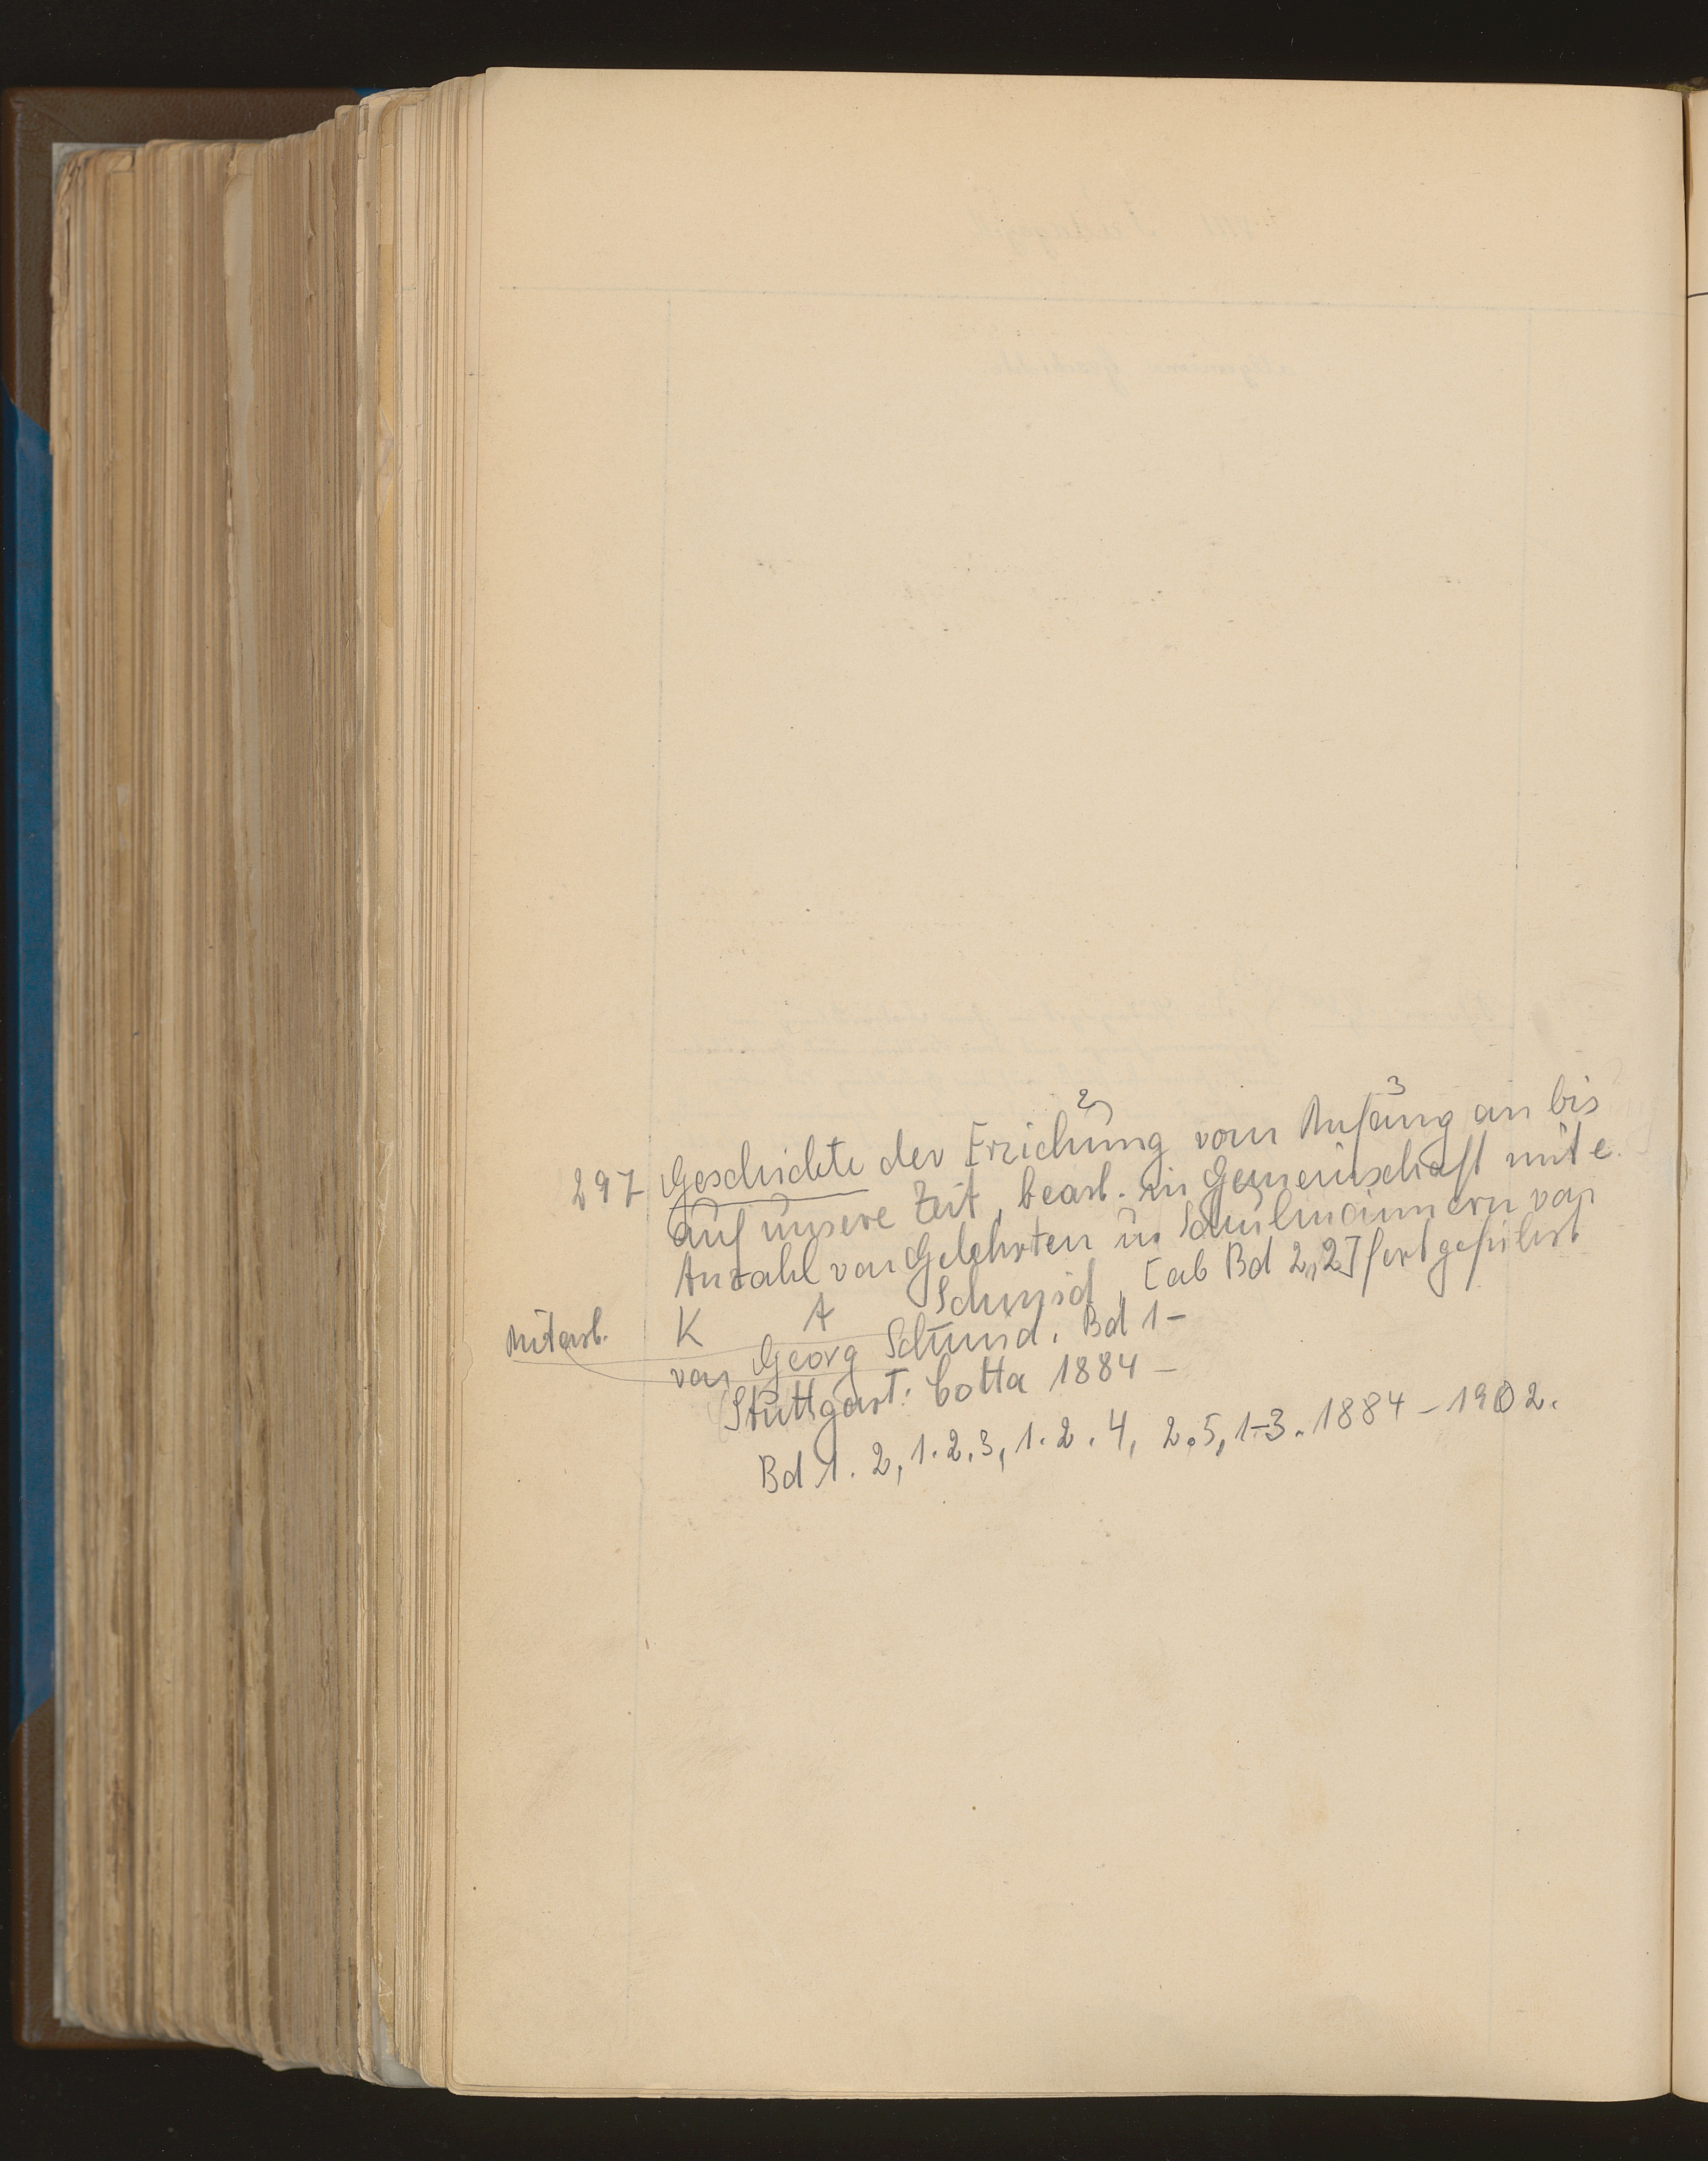 2) 3
297 Geschichte der Erziehung vom Anfang an bis
auf unsere Zeit, bearb. in Gemeinschaft mit e.
Anzahl von Gelehrten u. Schulmännern von
Mitarb. K A Schmid, [ab Bd 2,2] fortgeführt
von Georg Schmid. Bd 1-
Stuttgart: Cotta 1884-
Bd 1. 2,1.2.3,1.2.4, 2.5,1-3. 1884-1902.